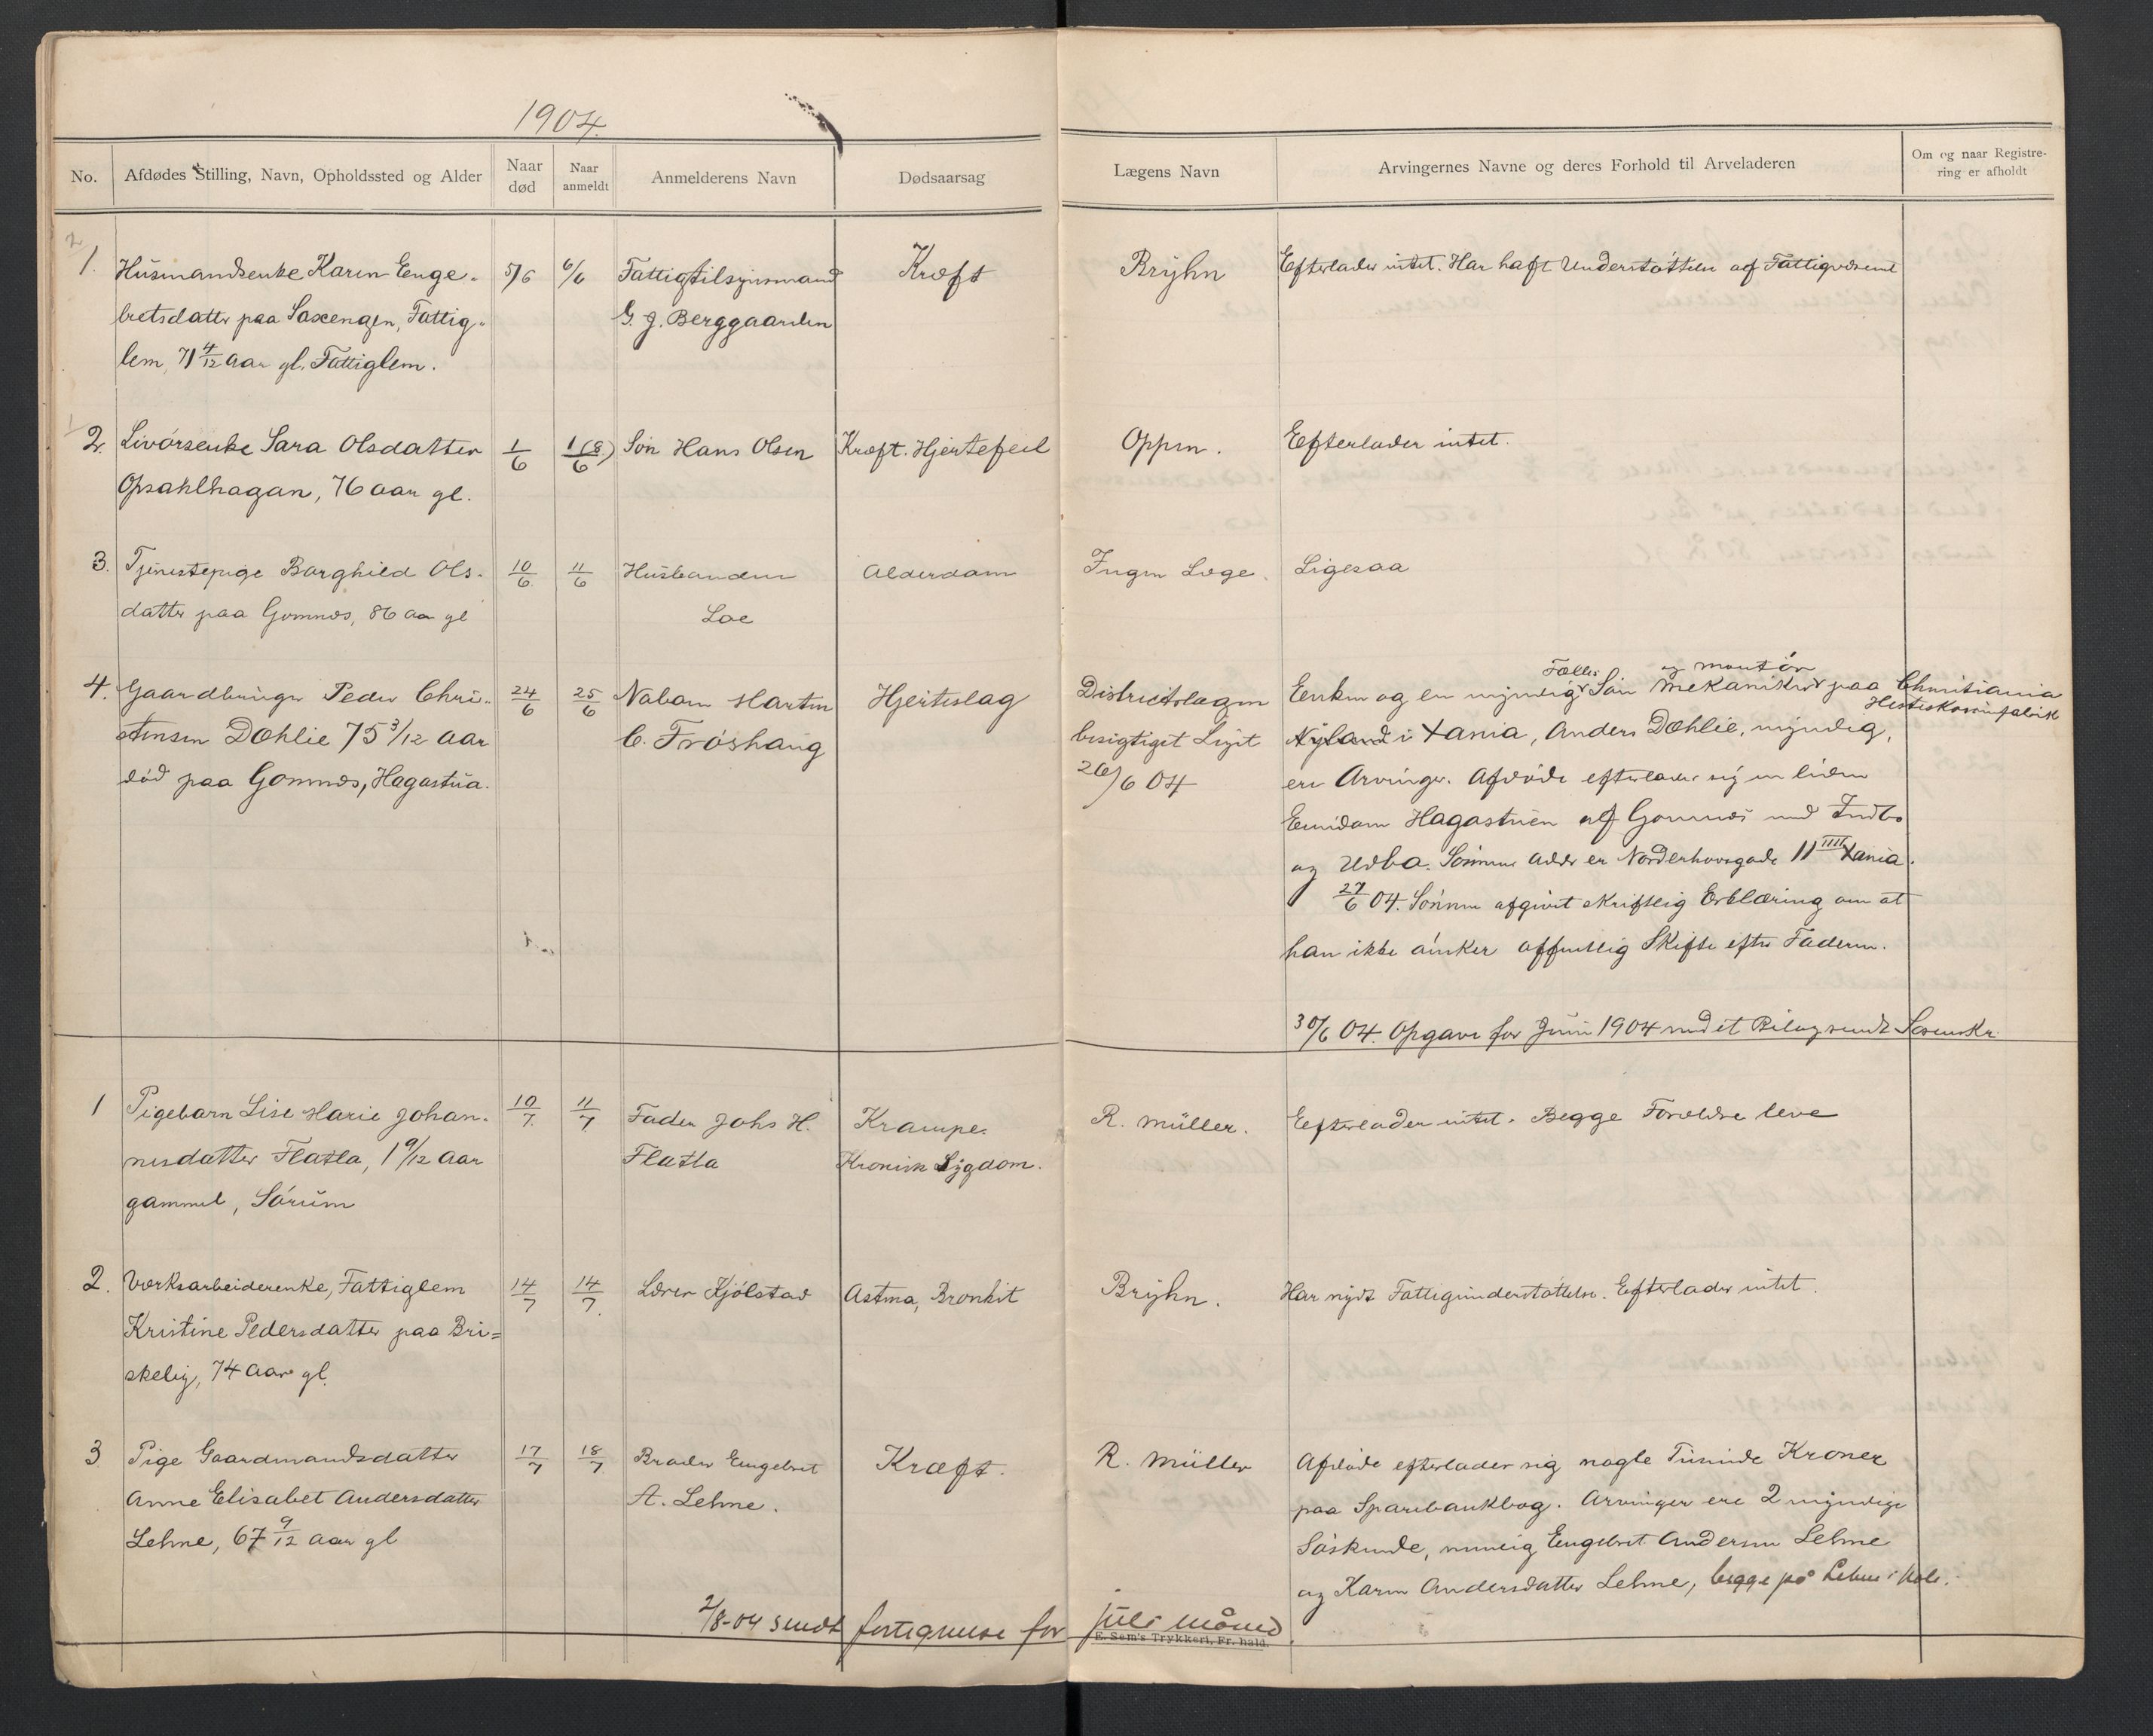 1904.
No.
Afdødes Stilling, Navn, Opholdssted og Alder
Naar død
Naar anmeldt
Anmelderens Navn
Dødsaarsag
Lægens Navn
Arvingernes Navne og deres Forhold til Arveladeren
Om og naar Registre-
ring er afholdt
1. Husmandsenke Karen Enge- 5/6 6/6 Fattigtilsynsmand Kræft Bryhn Efterlader intet. Har haft Understøttelse af Fattigvæsenet
bretsdatter paa Saxengen, Fattig- G. J. Berggaarden
lem, 71 4/12 Aar gl. Fattiglem.
2. Livørsenke Sara Olsdatter 1/6 1(8)/6 Søn Hans Olsen Kræft. Hjertefeil Oppen. Efterlader intet.
Opsahlhagan, 76 aar gl.
3. Tjenestepige Borghild Ols- 10/6 11/6 Husbonden Alderdom Ingen Læge. Ligesaa
datter paa Gomnæs, 86 aar gl Loe
4. Gaardbruger Peder Chri- 24/6 25/6 Naboen Martin Hjerteslag Districtslægen Enken og en myndig Fælles Søn Mekaniker og montør paa Christiania
Hesteskosømfabrik
stensen Dæhlie 75 3/12 Aar C. Frøshaug besigtiget Liget Nyland i Xania, Anders Dæhlie, myndig,
død paa Gomnæs, Hagastua. 26/6 04 ere Arvinger. Afdøde efterlader sig en liden
Eiendom Hagastuen af Gomnæs med Indbo
og Udbo. Sønnens Addr er Norderhovsgade 11 IIII Xania.
27/6 04. Sønnen afgivet skriftlig Erklæring om at
han ikke ønsker offentlig Skifte efter Faderen.
30/6 04. Opgave for Juni 1904 med et Bilag sendt Sorenskr.
1 Pigebarn Lise Marie Johan- 10/7 11/7 Fader Johs H. Krampe. R. Müller. Efterlader intet. Begge Forældre leve
nesdatter Flatla, 1 9/12 Aar Flatla Kronisk Sygdom.
gammel, Sørum
2. Værksarbeiderenke, Fattiglem 14/7 14/7 Lærer Kjølstad Astma, Bronkit Bryhn. Har nydt Fattigunderstøttelse. Efterlader intet.
Kristine Pedersdatter paa Bri=
skelig, 74 Aar gl.
3 Pige Gaardmandsdatter 17/7 18/7 Broder Engebret Kræft. R. Müller Afdøde efterlader sig nogle Tusinde Kroner
Anne Elisabet Andersdatter A. Lehne. paa Sparebankbog. Arvinger ere 2 myndige
Lehne, 67 9/12 Aar gl Søskende, nemlig Engebret Andersen Lehne
og Karen Andersdatter Lehne, begge på Lehne i Hole.
2/8-04 sendt fortegnelse for juli måned
E. Sem's Trykkeri, Fr.hald.